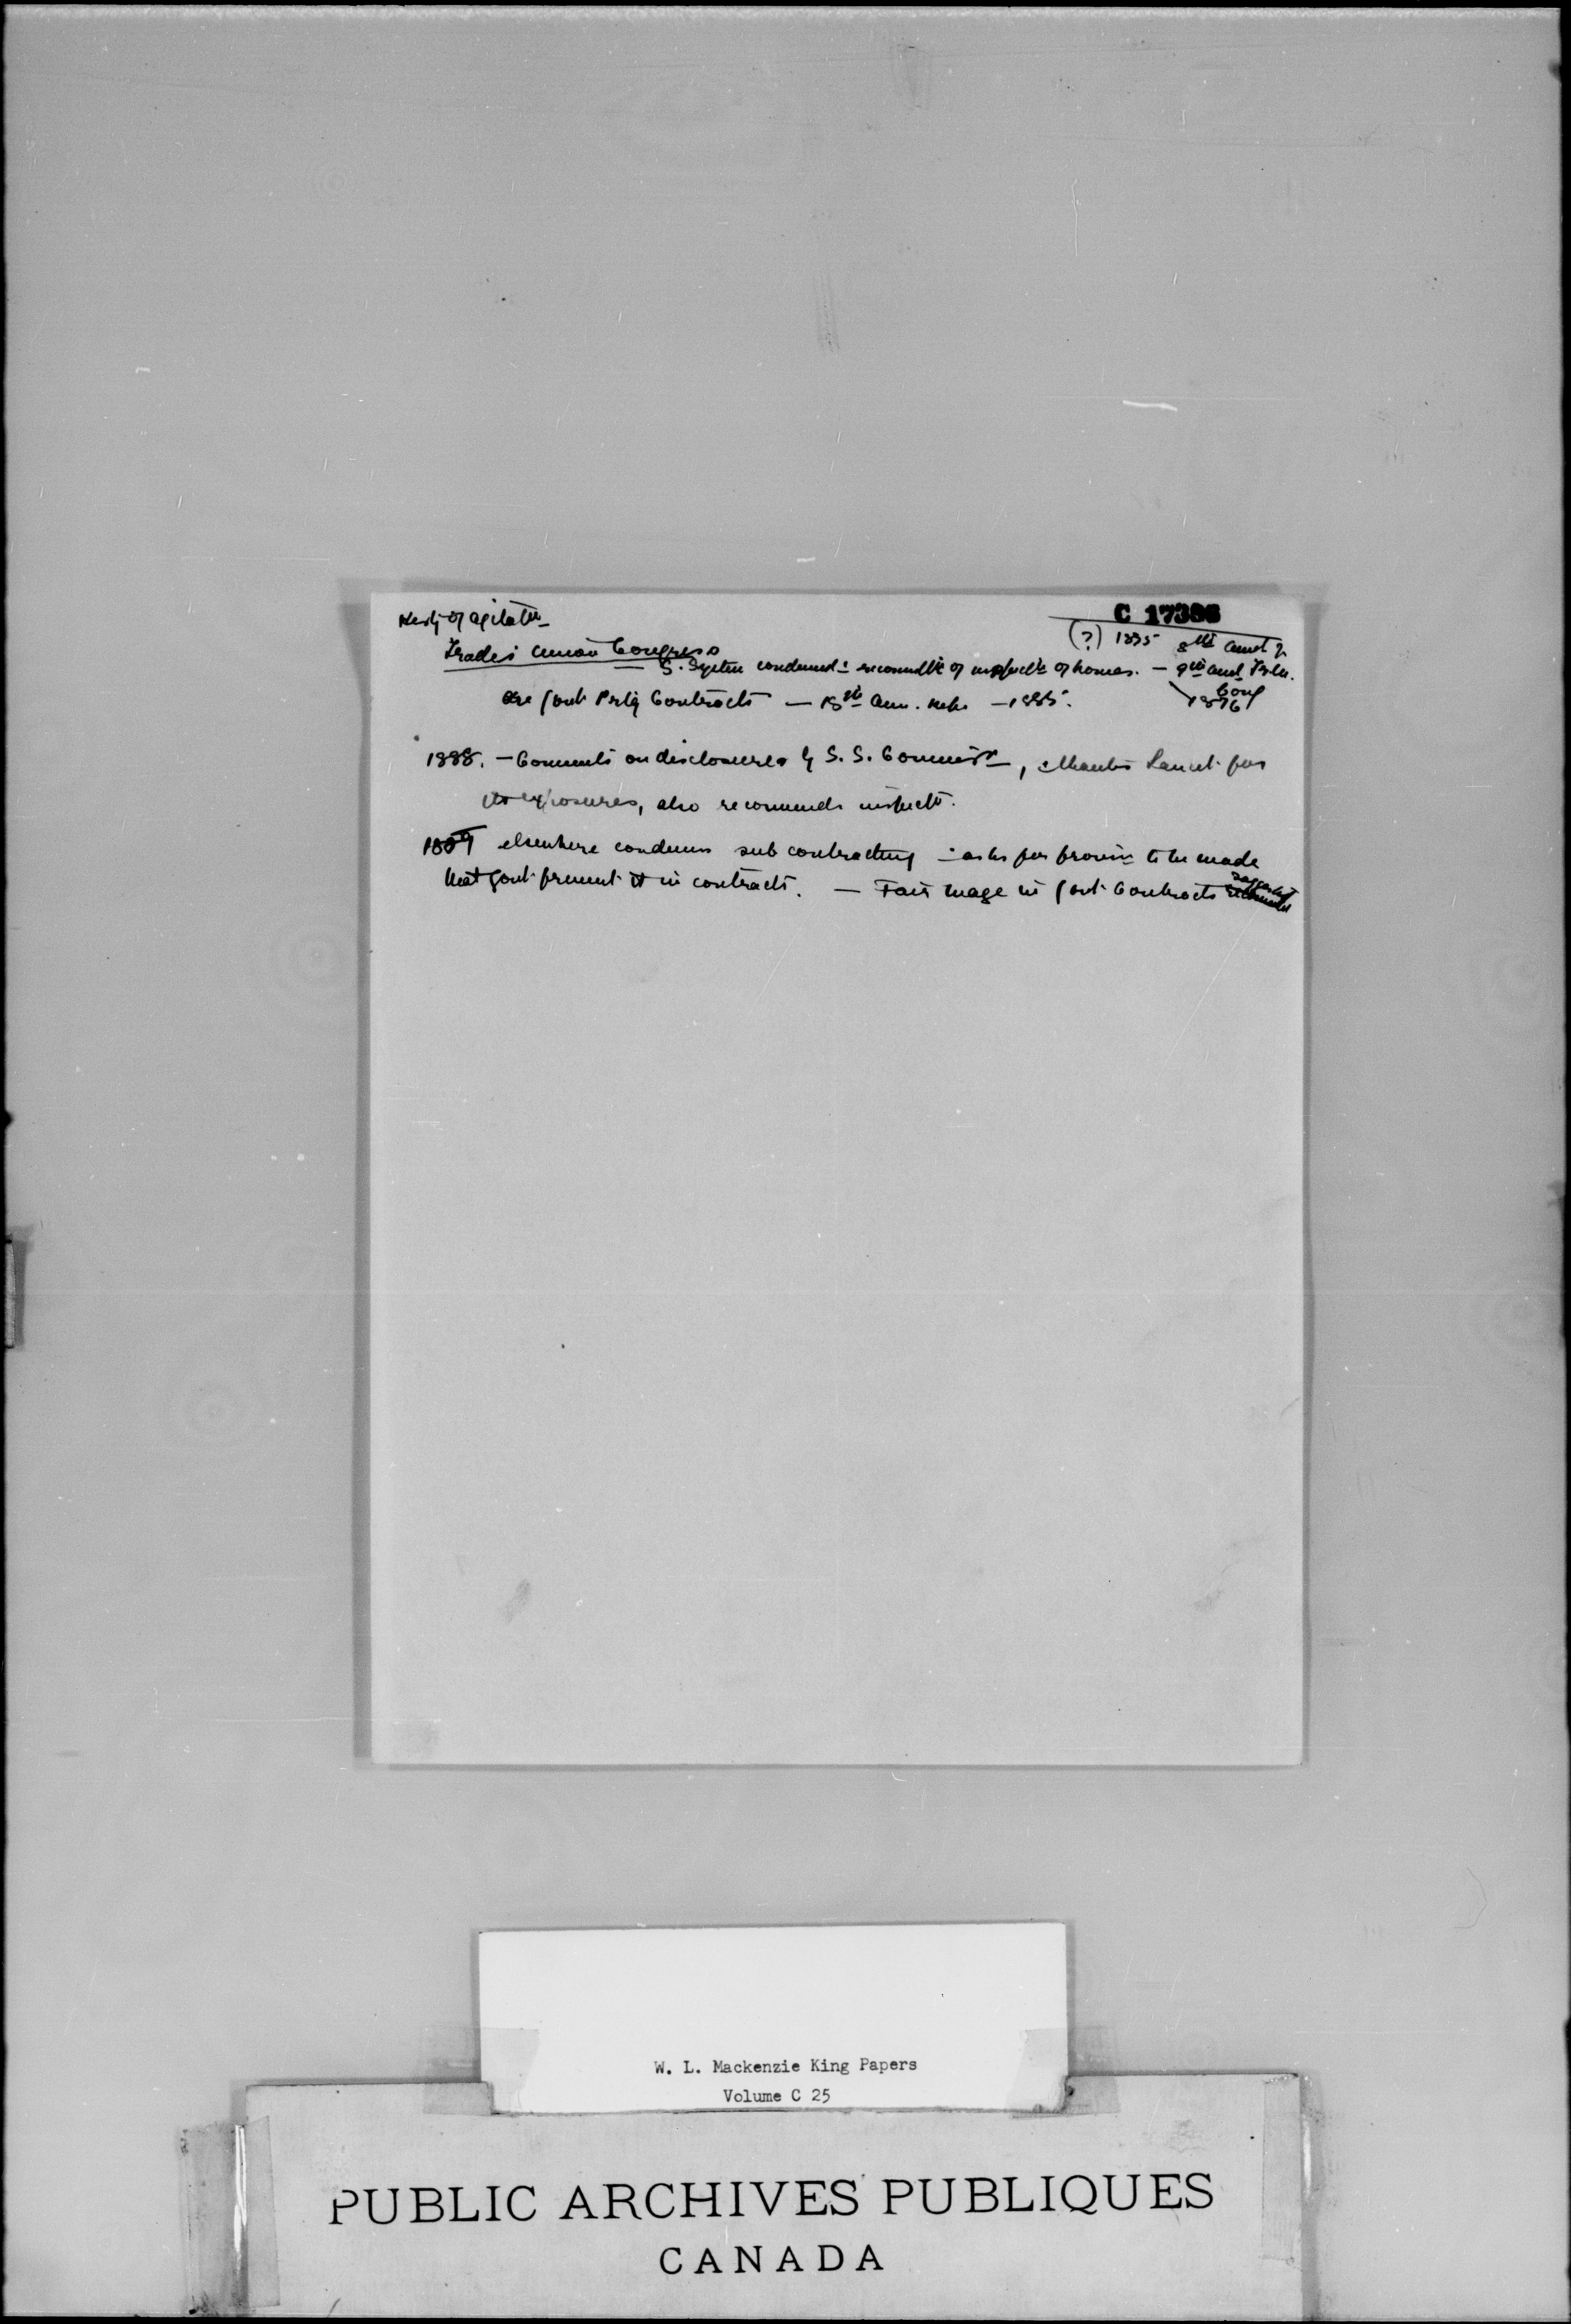 C 17386
Histy of agitatn
(?) 1835 8th annl
Trades Union Congress
— S. System condemned & recomndtn of inspectn of homes. — 9th annl
Cong
1876
Are Govt Prtg Contracts — 18th Ann. — 1885.
1888. — Comments on disclosures by S. S. Commissn, & thanks Lancet for
its exposures, also recommends inspectn.
1889 elsewhere condemns sub contracting & asks for provisn to be made
that Govt prevent it in contracts. — Fair wage in Govt Contracts suggested
W. L. Mackenzie King Papers
Volume C 25
PUBLIC ARCHIVES PUBLIQUES
CANADA